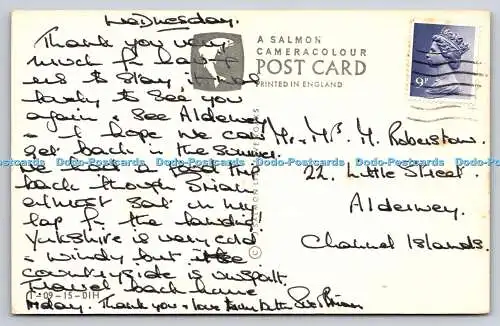 Wednesday.
Thank you very
much for having
us to stay, it was
lovely to see you
again & see Alderney
- I hope we can
get back in the summer.
We had a good trip
back though Brian
almost sat in my
lap for the landing!
Yorkshire is very cold
& windy but the
countryside is unspoilt.
Travel back home
Friday. Thank you & love
Brian
1-09-15-01H
A SALMON
CAMERACOLOUR
POST CARD
PRINTED IN ENGLAND
9P
Mr. & Mrs. M. Robertson.
22. Little Street.
Alderney.
Channel Islands.
Dodo-Postcards Dodo-Postcards Dodo-Postcards Dodo-Postcards Dodo-Postcards Dodo-Postcards